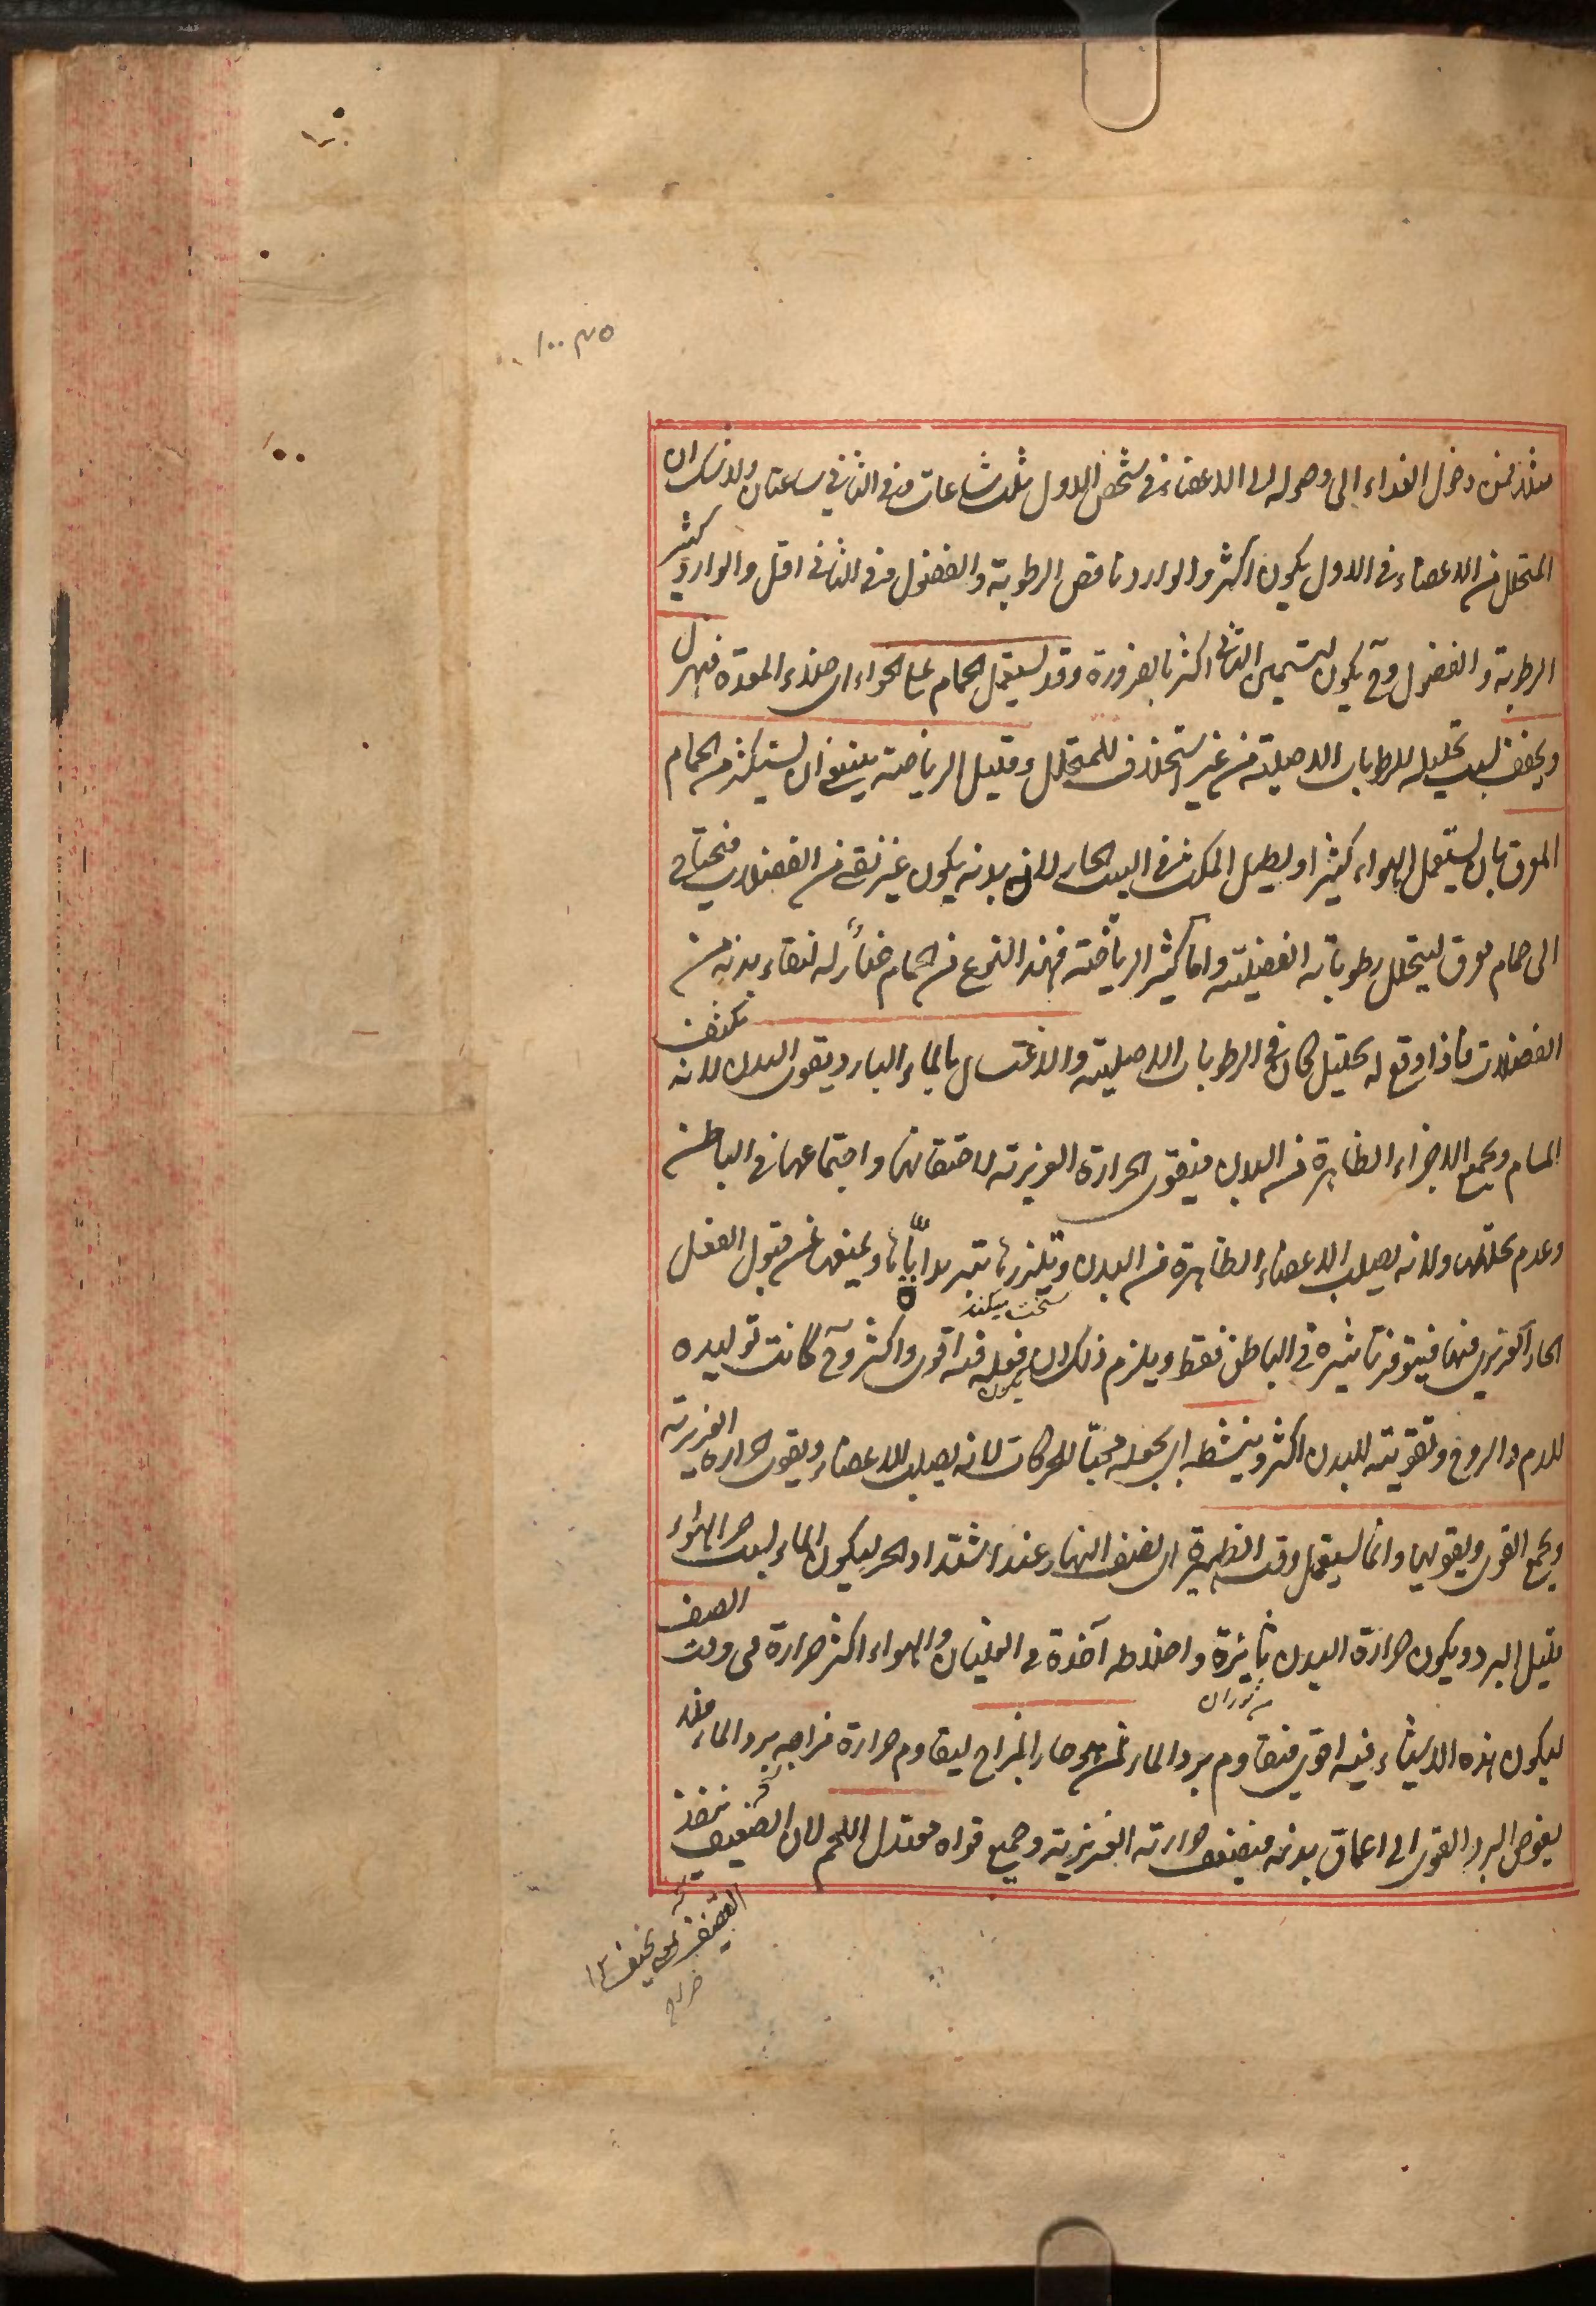 مثلا زمن دخول الغذاء الى وصوله الى الاعضاء فى شخص الاول ثلث ساعات و فى الثانى ساعتان ولا شك ان
المتحلل من الاعضاء فى الاول يكون اكثر والوارد ناقص الرطوبة والفضول و فى الثانى اقل والوارد كثير
الرطوبة والفضول وح يكون تسمين الثانى اكثر بالضرورة وقد يستعمل الحمام على الخواء اى خلاء المعدة فيهزل
ويجفف بسبب تحليله للرطوبات الاصلية من غير استخلاف للمتحلل وقليل الرياضة ينبغى ان يستكثر من الحمام
المعرق بان يستعمل الهواء كثيرا و يطيل المكث فى البيت الحار لان بدنه يكون غير نقى من الفضلات فيحتاج
الى حمام معرق ليتحلل رطوباته الفضلية واما كثير الرياضة فهذا النوع من الحمام ضار له لنقاء بدنه من
الفضلات فاذا وقع له تحليل كان فى الرطوبات الاصلية والاغتسال بالماء البارد يقوى البدن لانه يكثف
المسام ويجمع الاجزاء الظاهرة من البدن فيقوى الحرارة الغريزية لاحتقانها واجتماعها فى الباطن
وعدم تحللها ولانه يصلب الاعضاء الظاهرة من البدن ويلززها بتبريده اياها ويمنعها عن قبول الفعل
سخت میکند
الحار الغريزى فيها فيتوفر تاثيره فى الباطن فقط ويلزم ذلك ان يكون فعله فيه اقوى واكثر وح كانت توليده
للدم والروح وتقويته للبدن اكثر وينشطه اى يجعله محبا للحركات لانه يصلب الاعضاء ويقوى الحرارة الغريزية
ويجمع القوى ويقويها وانما يستعمل وقت الظهيرة اى نصف النهار عند اشتداد الحر ليكون الماء بسبب حر الهواء
قليل البرد ويكون حرارة البدن ثائرة واخلاطه آخذة فى الغليان والهواء اكثر حرارة فى وقت الصيف
من ثوران
ليكون هذه الاشياء فيه اقوى فيقاوم برد الماء ممن هو حار المزاج ليقاوم حرارة مزاجه برد الماء فلا
يغوص البرد القوى الى اعماق بدنه فيضعف حرارته الغريزية وجميع قواه معتدل اللحم لان القضيف ينفذ
القضيف نحيف ١٢
صراح